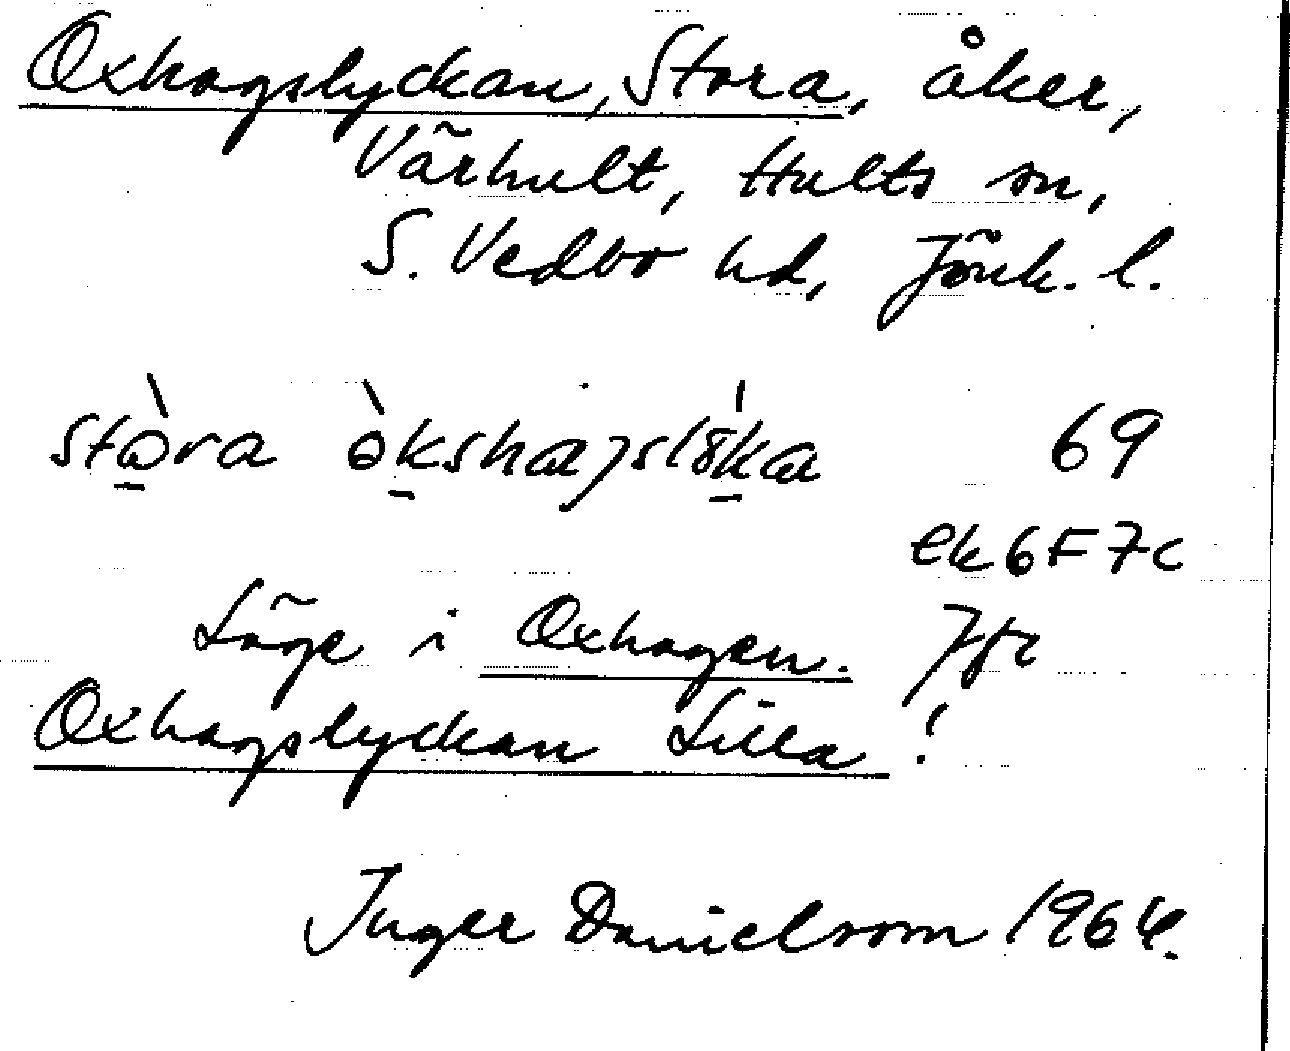 Oxhagslyckan, Stora, åker,
Värhult, Hults sn,
S. Vedbo hd, Jönk. l.
69
ek 6F7c
Läge i Oxhagen. Jfr
Oxhagslyckan Lilla!
Inger Danielsson 1964.